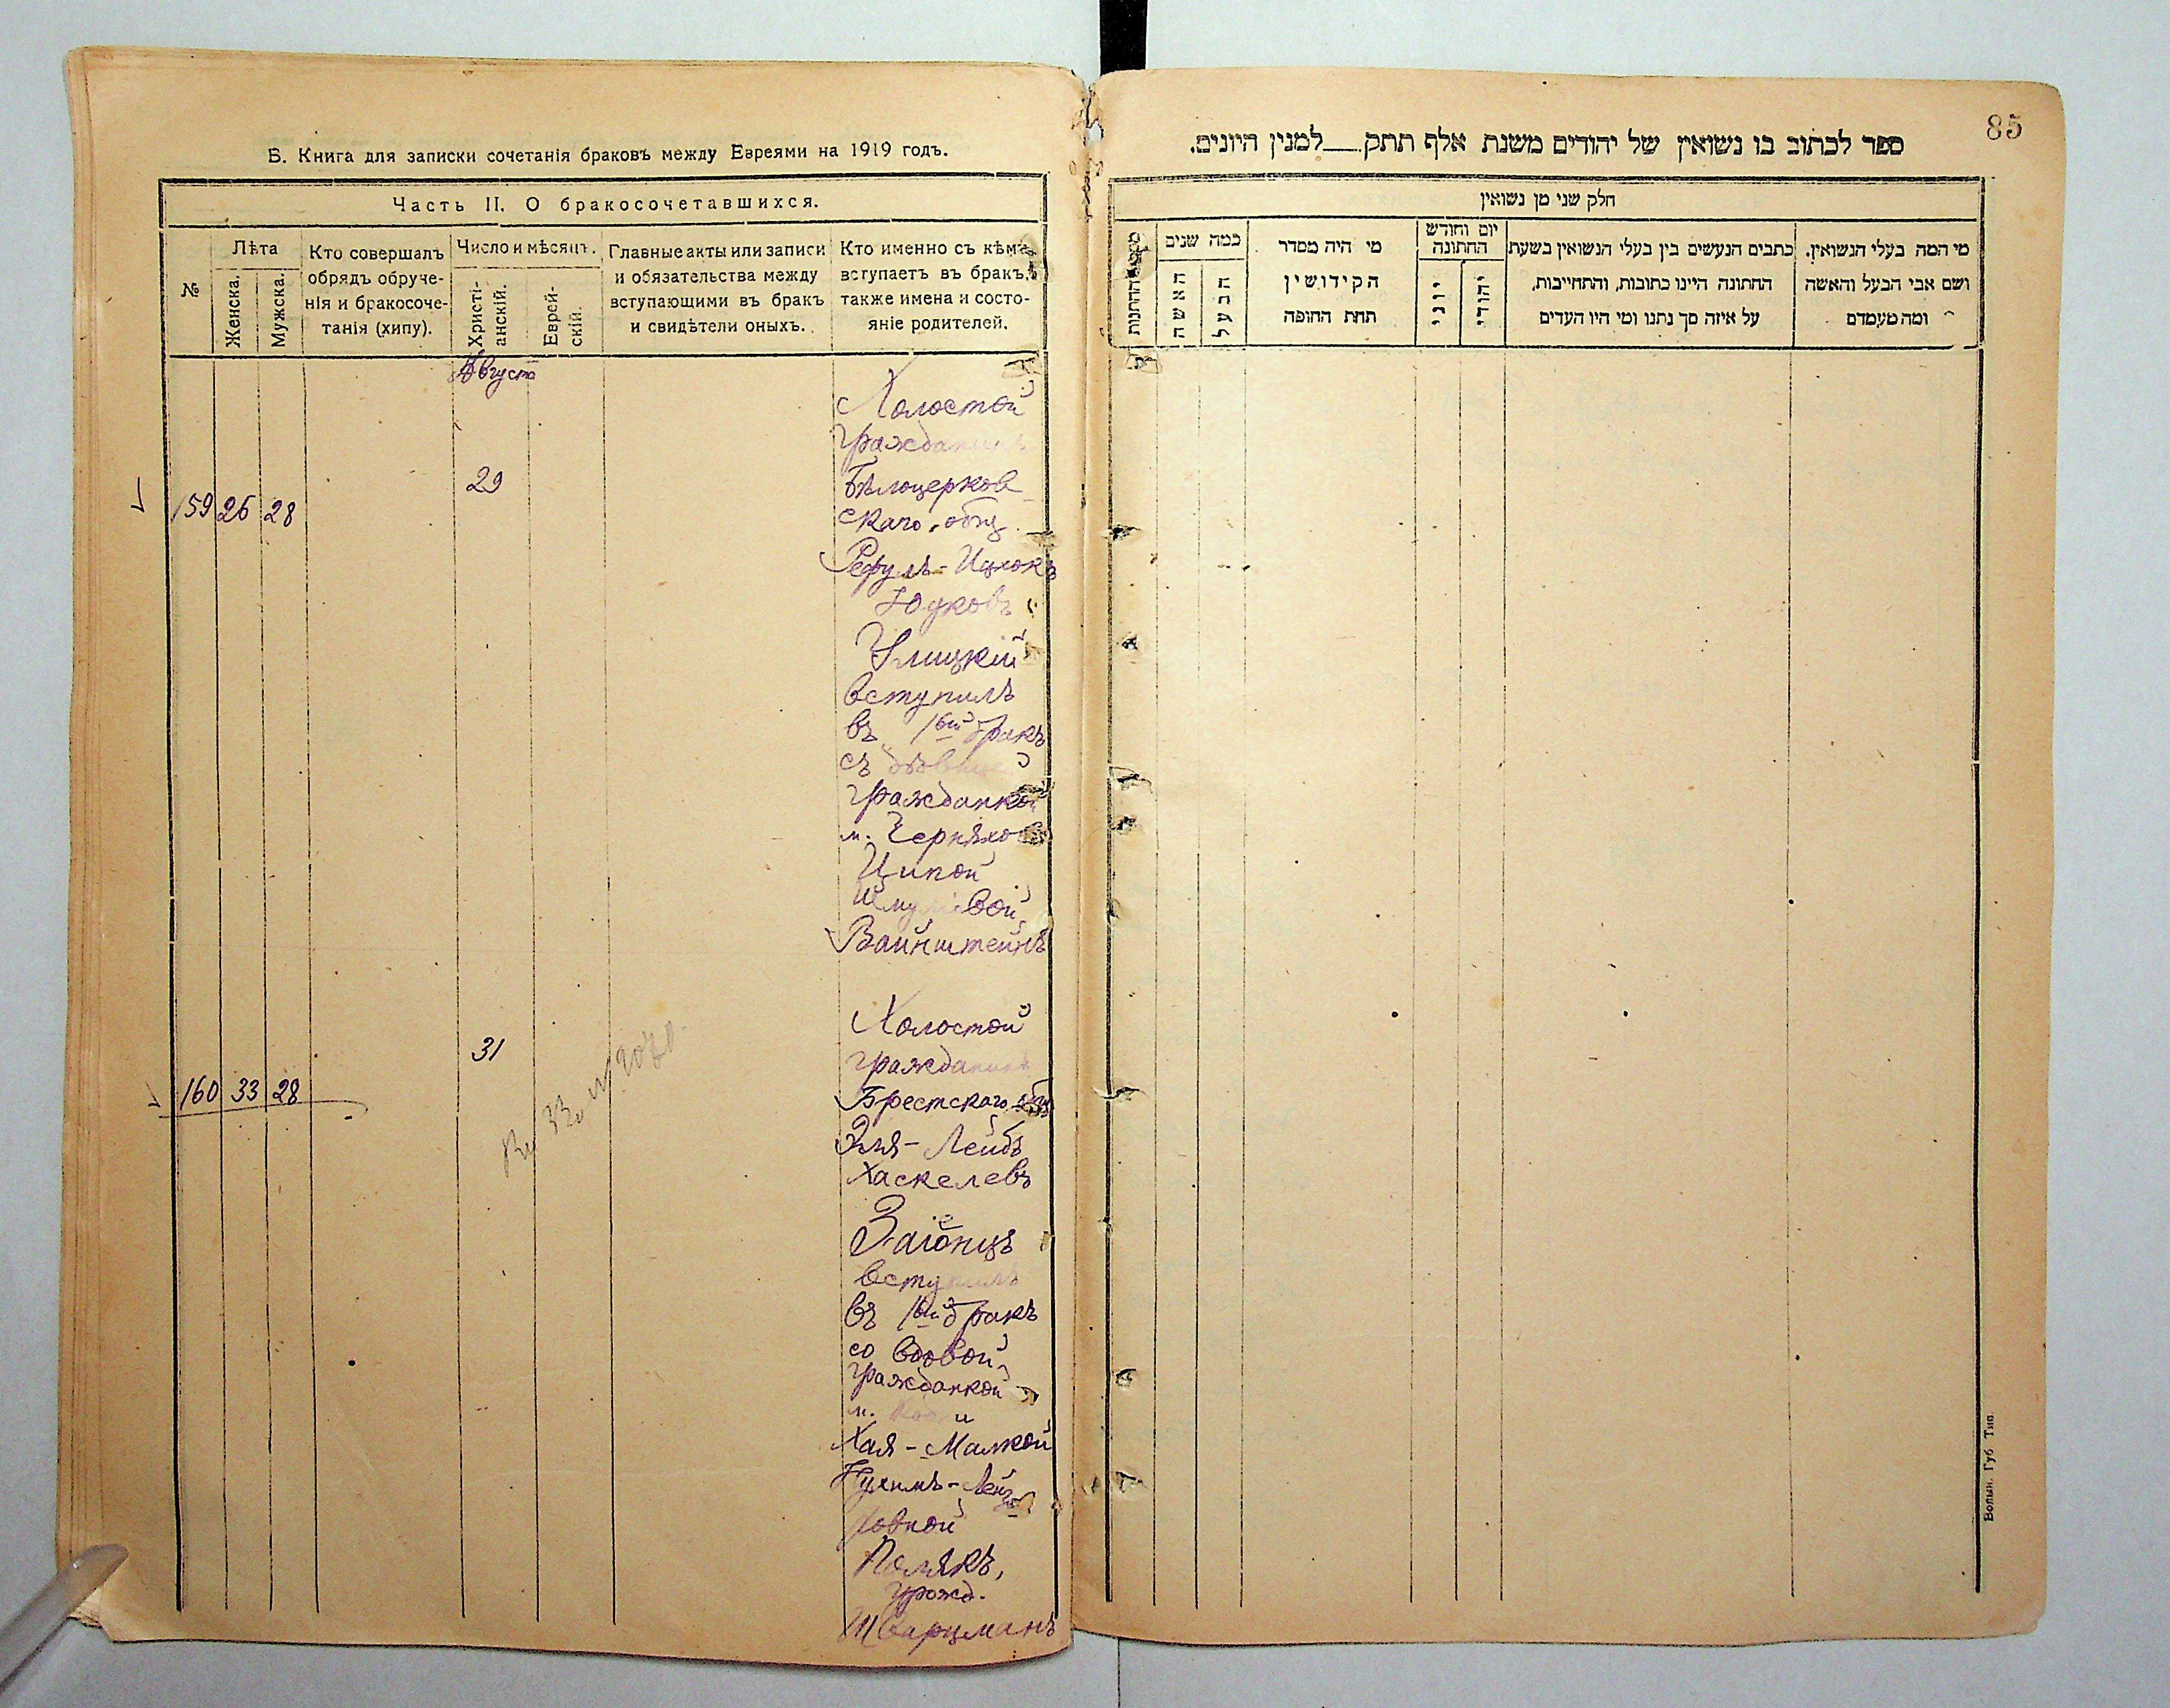 В. Книга для записки сочетанія браковъ между Евреями на 1919 годъ.
Часть II. О бракосочетавшихся.
№
Лѣта
Женска.
Мужска.
Кто совершалъ
обрядъ обруче-
нія и бракосоче-
танія (хипу).
Число и мѣсяцъ.
Христі-
анскій.
Еврей-
скій.
Главные акты или записи
и обязательства между
вступающими въ бракъ
и свидѣтели оныхъ.
Кто именно съ кѣмъ
вступаетъ въ бракъ,
также имена и состо-
яніе родителей.
Августа
159 26 28
29
Холостой
гражданинъ
Бѣлоцерков
скаго общ
Рефулъ-Ицхокъ
вступилъ
въ 1ый бракъ
съ
гражданкой
м. Черняхо
Ципой
Вайнштейнъ
160 33 28
31
Холостой
гражданинъ
Брестскаго общ
Эля-Лейбъ
Хаскелевъ
Заіонцъ
вступилъ
въ 1ый бракъ
со вдовой
гражданкой
м.
Хая-Малкой
Нухимъ-Лейзе
ровной
Полякъ,
урожд.
Шварцманъ
85
ספר לכתוב בו נשואין של יהודים משנת אלף תתק למנין היונים.
חלק שני מן נשואין
מי המה בעלי הנשואין.
ושם אבי הבעל והאשה
ומה מעמדם
כתבים הנעשים בין בעלי הנשואין בשעת
החתונה היינו כתובות, והתחייבות,
על איזה סך נתנו ומי היו העדים
יום וחודש
החתונה
יהודי
יוני
מי היה מסדר
הקידושין
תחת החופה
כמה שנים
הבעל
האשה
החתונות
Волын. Губ. Тип.